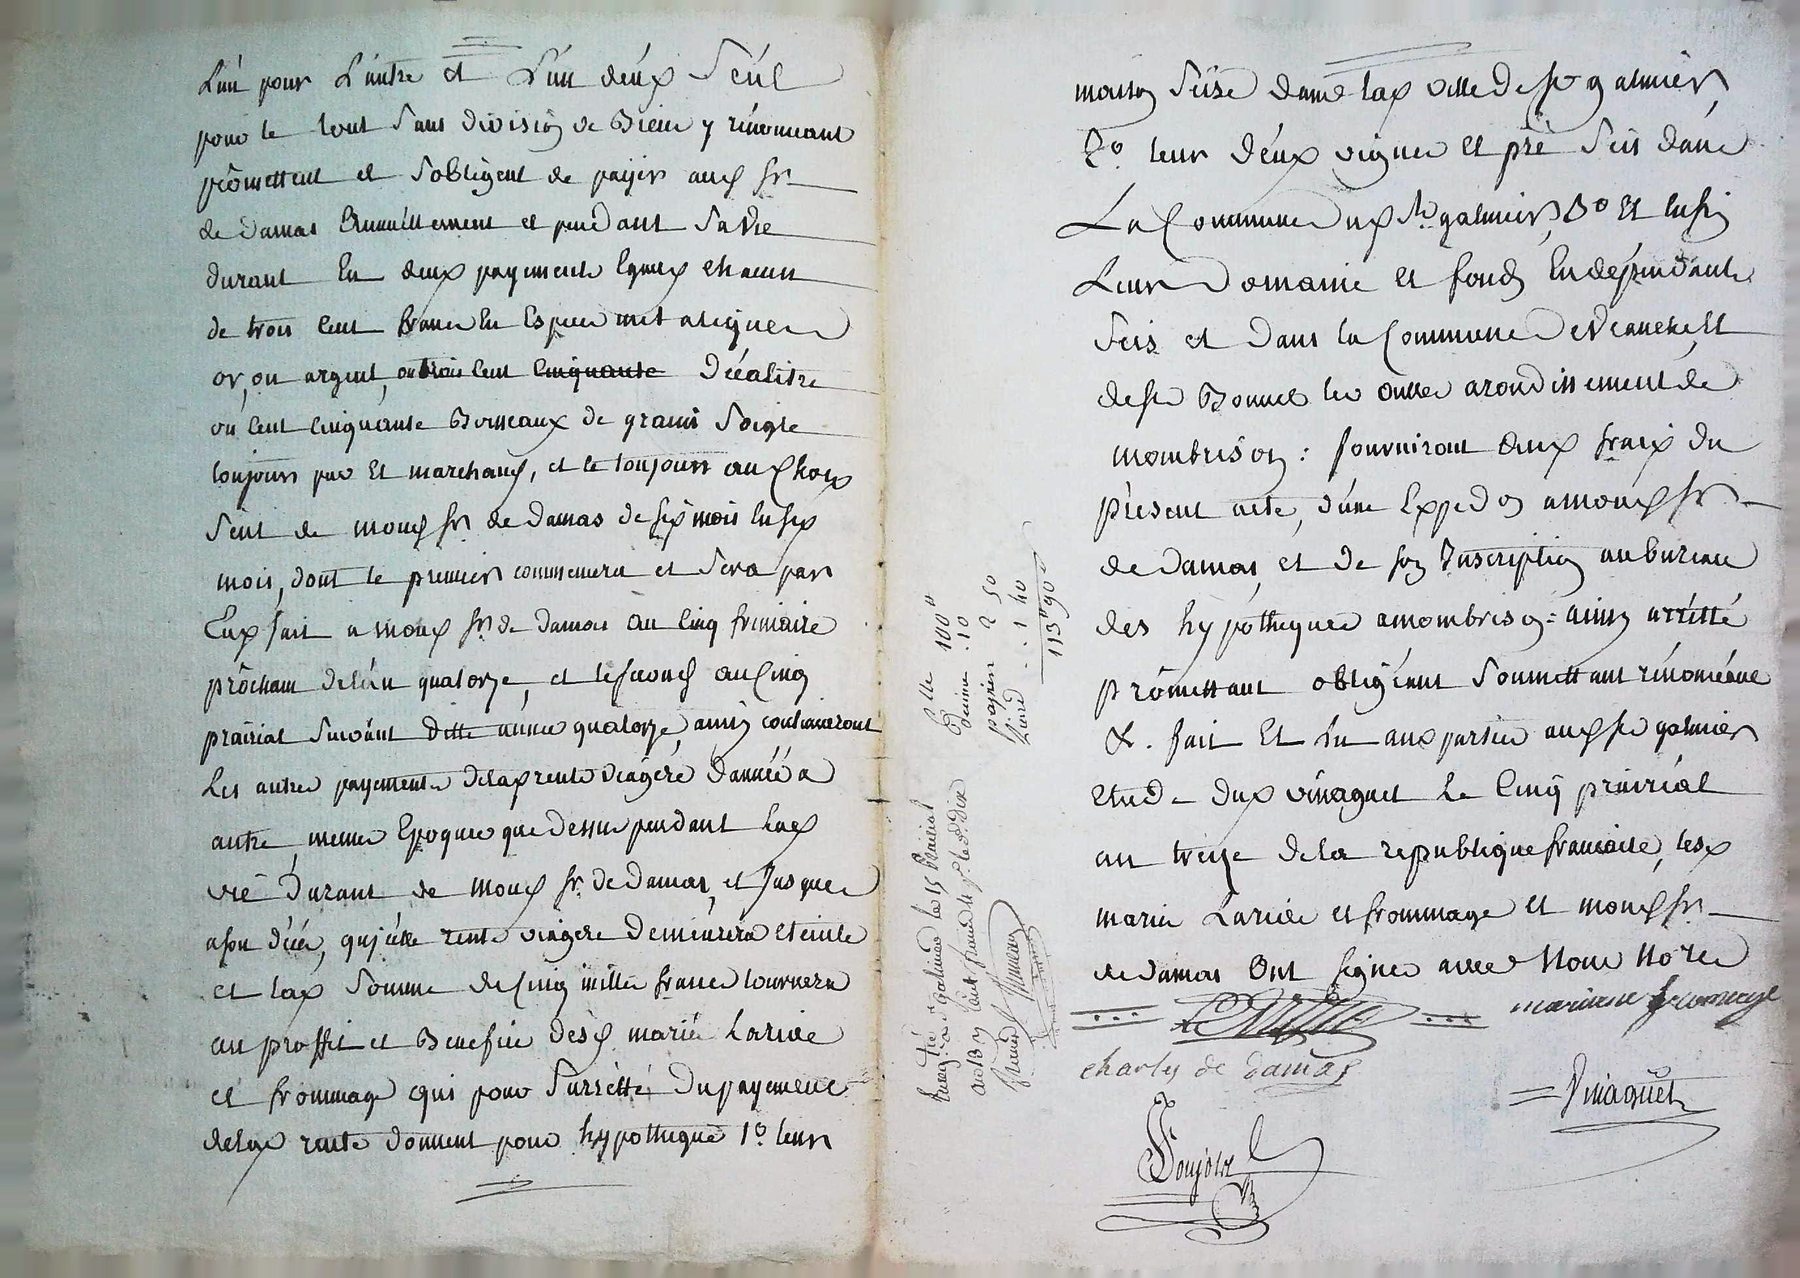 L'un pour L'autre et L'un deux Seul
pour le tout Sans division de Biens y rénonceant
prômettent et S'obligent de payer aud. Sr.
de Damas Annuellement et pendant Sa Vie
durant En deux payements Egaux chacun
de trois Cent francs En Espece metalique
or, ou argent, ou trois Cent Cinquante Décalitre
ou Cent Cinquante Boisseaux de grains Soigle
toujours pur Et marchand, et le toujours au Choix
Seul de mond. Sr. de Damas de Six mois En Six
mois, dont le premier commencera et Sera par
Eux fait a mond. Sr. de Damas Au Cinq frimaire
prôchain de L'an quatorze, et le Second au Cinq
prairial Suivant ditte année quatorze, ainsy continueront
Les autres payements de lad. rente viagere d'année a
autre, memes Epoques que Dessus pendant Lad.
vie Durant de mond. Sr. de Damas, et Jusques
a son décés, qu'icelle rente viagere Demeurera Eteinte
et lad. Somme de Cinq mille francs tournera
au proffit et Benefice desd. mariés Larive
et frommage qui pour Surretté Du payement
de lad. rente donnent pour hypotheque 1.o leur
maison Seise dans lad. ville de St. galmier
2.o leurs deux vignes et pré Seis dans
La Commune dud. St. galmier, 3.o Et Enfin
Leur Domaine et fonds En dépendants
Seis et dans la Commune de Veauche, Et
de St. Bonnet les oulles arondissement de
mombrison : fourniront Eux frais du
présent acte, d'une Exped.on a mond. Sr.
de Damas, et de Son Inscription au bureau
des hypotheques a mombrison : ainsy arretté
prômettant obligeant Soumettant rénonceant
&. fait Et Lu aux parties aud. St. galmier
Etude dud. vinaguet Le Cinq prairial
an treize de la republique francaise, lesd.
mariés Larive et frommage et mond. Sr.
de Damas Ont Signés avec Nous No.res
Larive
marianne fromage
charles de damas
Vinaguet
Poujolat
C. lle 100"
Décime . 10
papier 2 50
Livre . . 1 40
113" 90
Enreg.tré a St. galmier le 15 Prairial
an 13